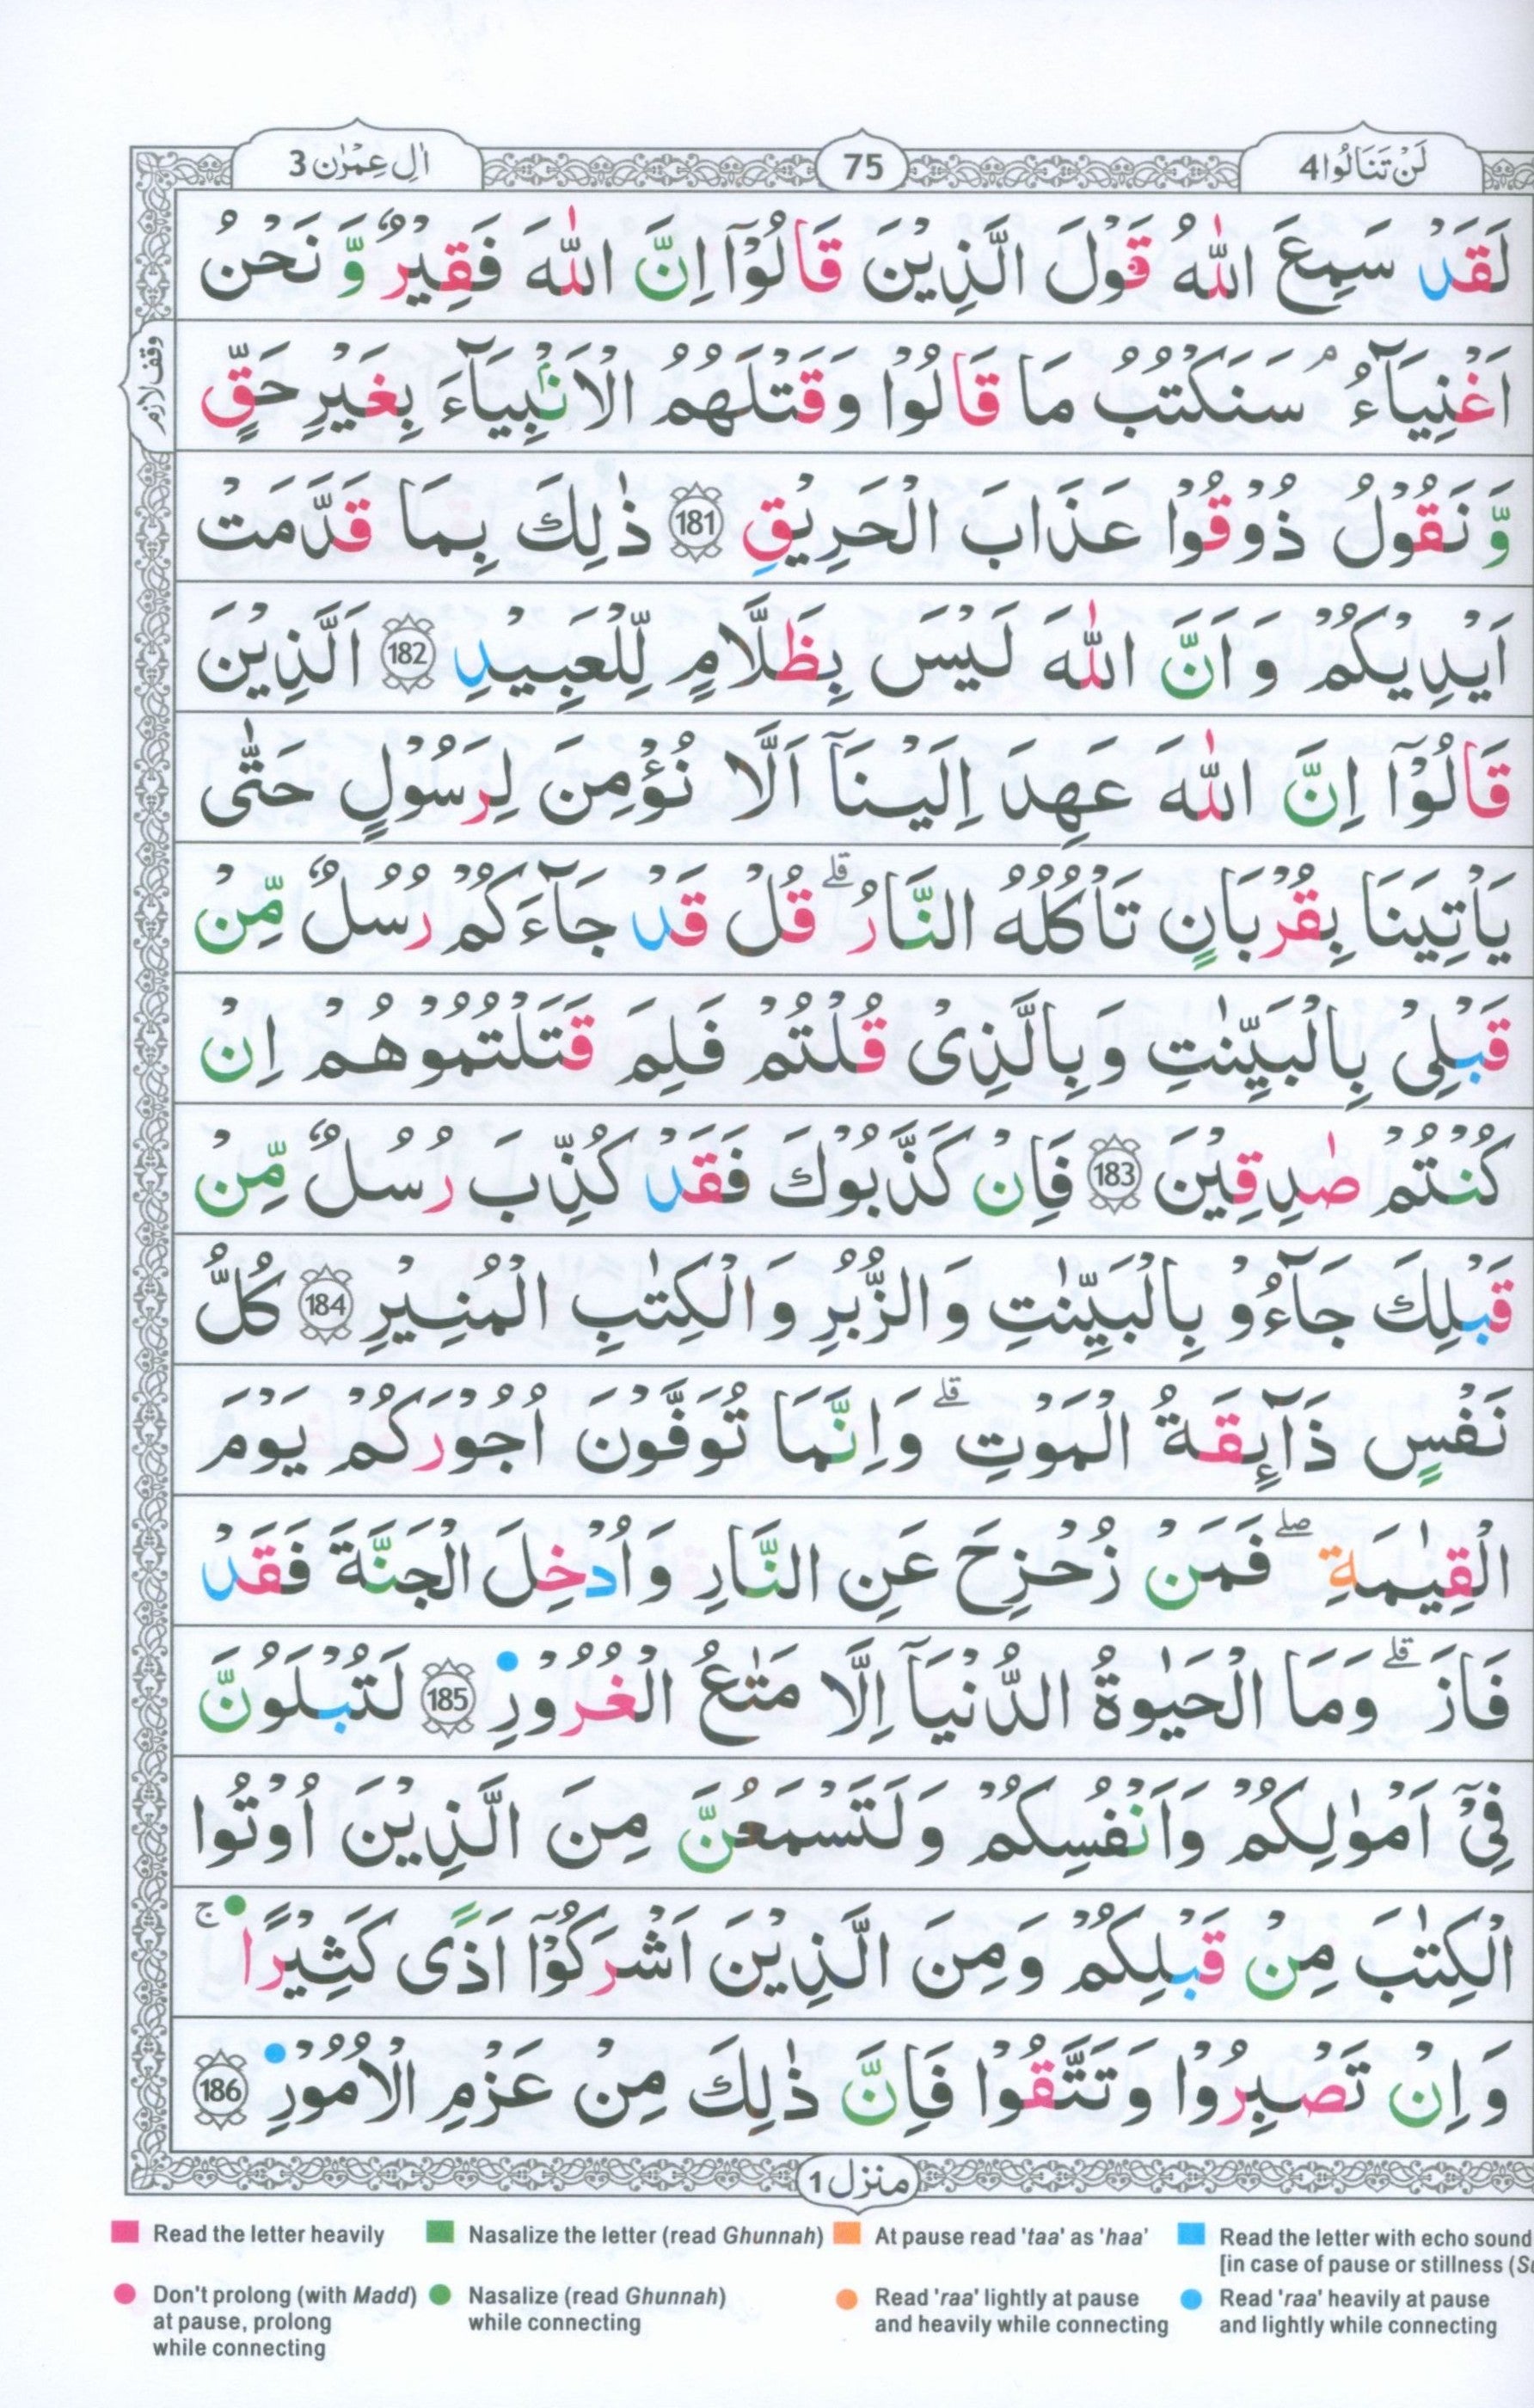 اٰلِ عِمْرٰن 3
75
لَنْ تَنَالُوا 4
لَقَدْ سَمِعَ اللّٰهُ قَوْلَ الَّذِيْنَ قَالُوْۤا اِنَّ اللّٰهَ فَقِيْرٌ وَّ نَحْنُ
اَغْنِيَآءُ ۘ سَنَكْتُبُ مَا قَالُوْا وَقَتْلَهُمُ الْاَنْۢبِيَآءَ بِغَيْرِ حَقٍّ
وقف لازم
وَّ نَقُوْلُ ذُوْقُوْا عَذَابَ الْحَرِيْقِ 181 ذٰلِكَ بِمَا قَدَّمَتْ
اَيْدِيْكُمْ وَ اَنَّ اللّٰهَ لَيْسَ بِظَلَّامٍ لِّلْعَبِيْدِ 182 اَلَّذِيْنَ
قَالُوْۤا اِنَّ اللّٰهَ عَهِدَ اِلَيْنَاۤ اَلَّا نُؤْمِنَ لِرَسُوْلٍ حَتّٰى
يَاْتِيَنَا بِقُرْبَانٍ تَاْكُلُهُ النَّارُ ؕقلے قُلْ قَدْ جَآءَكُمْ رُسُلٌ مِّنْ
قَبْلِىْ بِالْبَيِّنٰتِ وَبِالَّذِىْ قُلْتُمْ فَلِمَ قَتَلْتُمُوْهُمْ اِنْ
كُنْتُمْ صٰدِقِيْنَ 183 فَاِنْ كَذَّبُوْكَ فَقَدْ كُذِّبَ رُسُلٌ مِّنْ
قَبْلِكَ جَآءُوْ بِالْبَيِّنٰتِ وَالزُّبُرِ وَالْكِتٰبِ الْمُنِيْرِ 184 كُلُّ
نَفْسٍ ذَآئِقَةُ الْمَوْتِ قلے وَاِنَّمَا تُوَفَّوْنَ اُجُوْرَكُمْ يَوْمَ
الْقِيٰمَةِ ۖ فَمَنْ زُحْزِحَ عَنِ النَّارِ وَاُدْخِلَ الْجَنَّةَ فَقَدْ
فَازَ قلے وَمَا الْحَيٰوةُ الدُّنْيَاۤ اِلَّا مَتٰعُ الْغُرُوْرِ 185 لَتُبْلَوُنَّ
فِىْۤ اَمْوٰلِكُمْ وَاَنْفُسِكُمْ وَلَتَسْمَعُنَّ مِنَ الَّذِيْنَ اُوْتُوا
الْكِتٰبَ مِنْ قَبْلِكُمْ وَمِنَ الَّذِيْنَ اَشْرَكُوْۤا اَذًى كَثِيْرًا ۚ
وَاِنْ تَصْبِرُوْا وَتَتَّقُوْا فَاِنَّ ذٰلِكَ مِنْ عَزْمِ الْاُمُوْرِ 186
منزل 1
Read the letter heavily
Nasalize the letter (read Ghunnah)
At pause read 'taa' as 'haa'
Read the letter with echo sound
[in case of pause or stillness
Don't prolong (with Madd)
at pause, prolong
while connecting
Nasalize (read Ghunnah)
while connecting
Read 'raa' lightly at pause
and heavily while connecting
Read 'raa' heavily at pause
and lightly while connecting